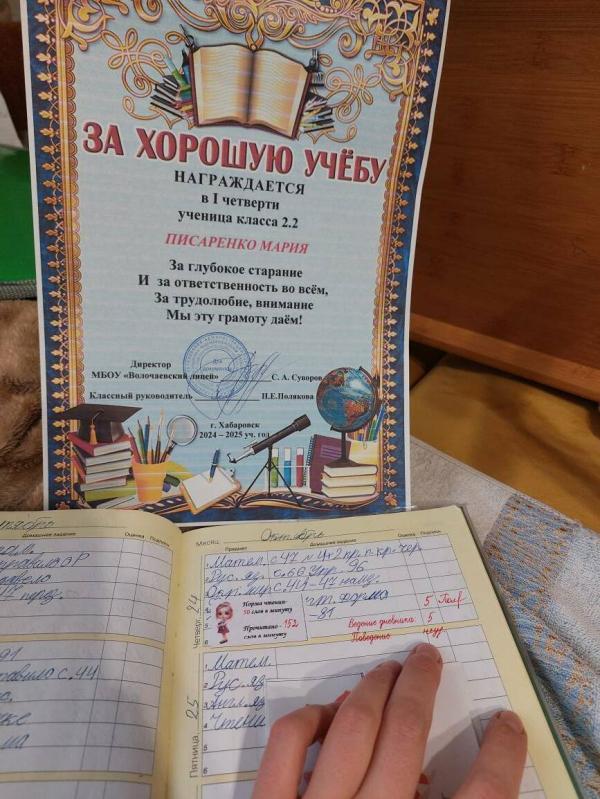 ЗА ХОРОШУЮ УЧЁБУ
НАГРАЖДАЕТСЯ
в I четверти
ученица класса 2.2
ПИСАРЕНКО МАРИЯ
За глубокое старание
И за ответственность во всём,
За трудолюбие, внимание
Мы эту грамоту даём!
Директор
МБОУ «Волочаевский лицей» С. А. Суворов
Классный руководитель Н.Е.Полякова
г. Хабаровск
2024 – 2025 уч. год
Домашнее задание Оценка Подпись
правило
с. 44
Месяц: Октябрь
Предмет Домашнее задание Оценка Подпись
Четверг, 24
Матем. с 47
Рус. яз. с. 66 Упр. 96
Окр. мир с. 44-47
Норма чтения-
50 слов в минуту
Прочитано - 152
слов в минуту
чт. дома
-81
5
Ведение дневника: 5
Поведение
Пятница, 25
1 Матем.
2 Рус. яз
3 Англ. яз
4 Чтени
5
6